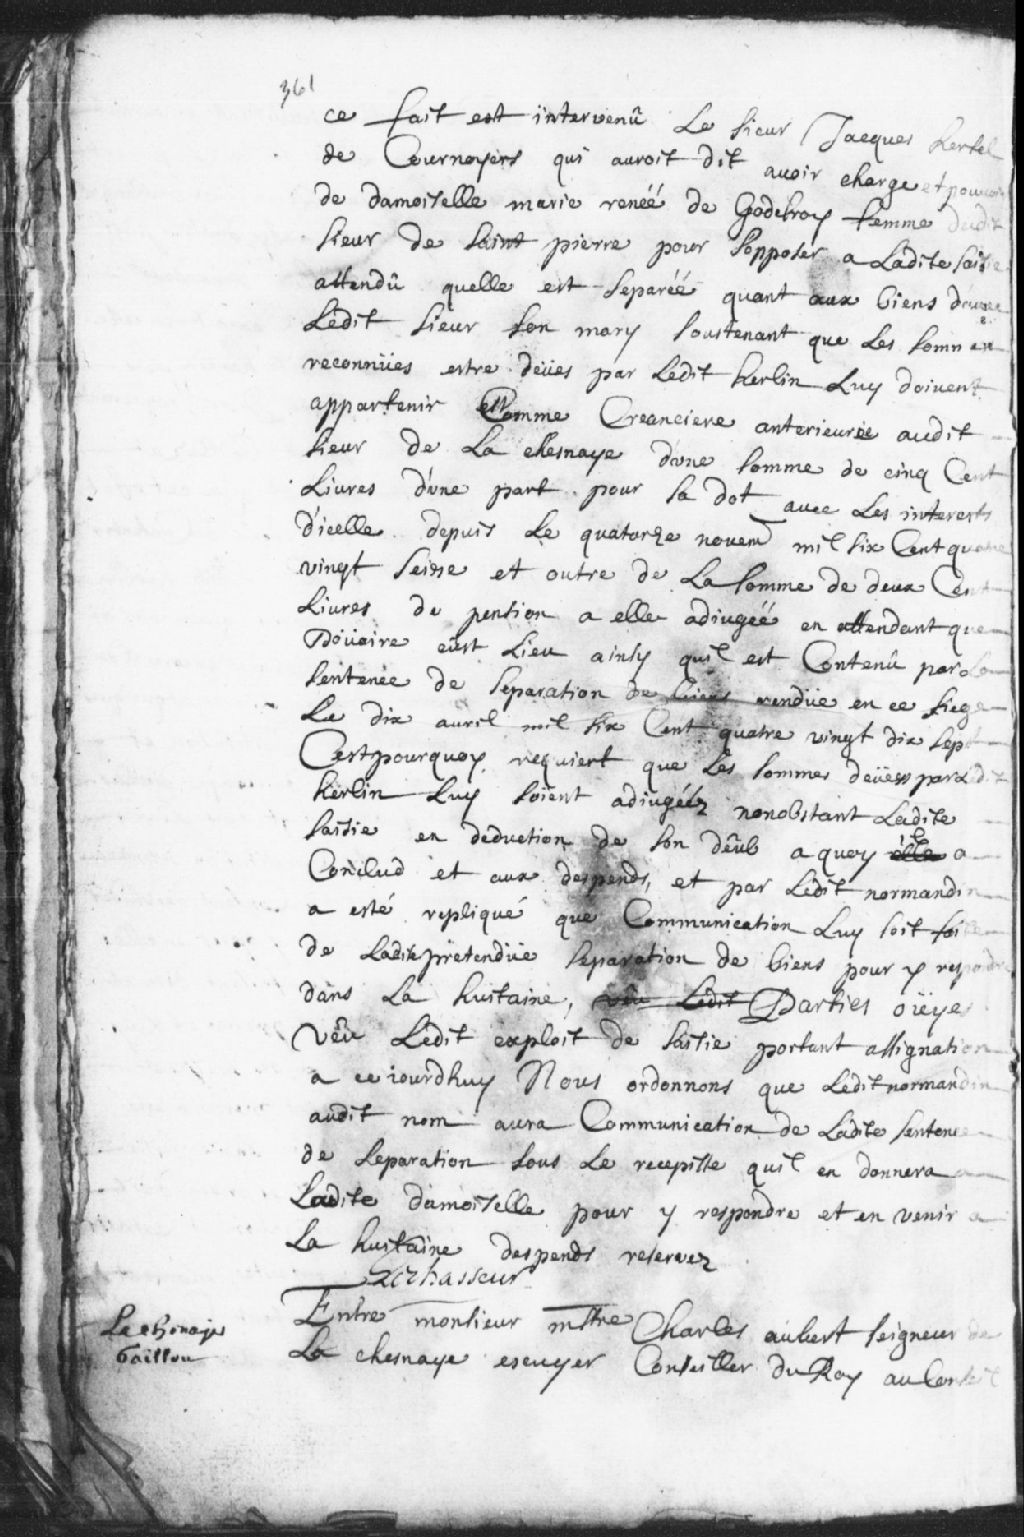 361
ce fait est intervenû Le sieur Jacques hertel
de Cournoyers qui auroit dit avoir charge et pouvoir
de damoiselle marie renéé de Godefroy femme dudit
sieur de saint pierre pour sopposer a Ladite saisie
attendû quelle est separéé quant aux biens d'avec
Ledit sieur son mary soustenant que Les sommes
reconnües estre deües par Ledit herlin Luy doivent
appartenir Comme Creanciere anterieure audit
sieur de La chesnaye d'une somme de cinq Cent
Livres d'une part pour sa dot avec Les interests
d'icelle depuis Le quatorze novem mil six Cent quatre
vingt seisse et outre de La somme de deux Cent
Livres de pension a elle adiugéé en attendant que
Doüaire eust Lieu ainsy quil est Contenû par La
sentence de separation de biens rendüe en ce siege
Le dix avril mil six Cent quatre vingt dix sept
Cest pourquoy requiert que Les sommes deües par Ledit
herlin Luy soient adiugééz nonobstant Ladite
saisie en deduction de son deûb a quoy elle il a
Conclud et aux despends, et par Ledit normandin
a esté repliqué que Communication Luy soit faitte
de Ladite pretendüe separation de biens pour y repondre
dans La huitaine, veu Ledit Parties oüyes
Veû Ledit exploit de saisie portant assignation
a ce iourdhuy Nous ordonnons que Ledit normandin
audit nom aura Communication de Ladite sentence
de separation sous Le recepisse quil en donnera a
Ladite damoiselle pour y respondre et en venir a
La huitaine despends reservez
Lechasseur
Entre monsieur mstre Charles aubert seigneur de
La chesnaye escuyer Conseiller du Roy au Conseil
La chenaye
baillou